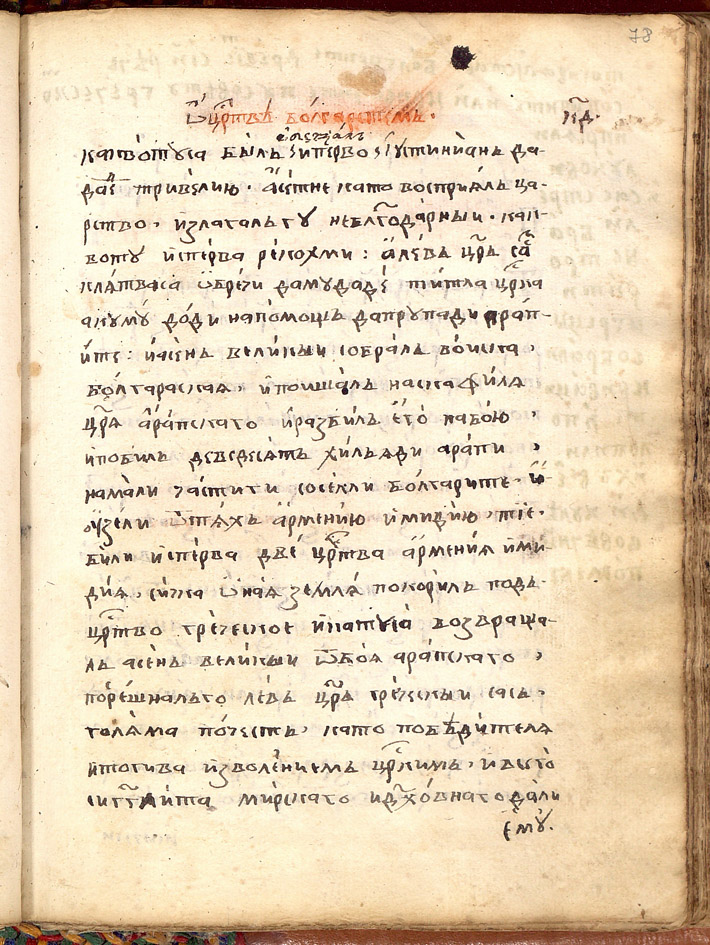 78
Ѿ црⷭ҇твѣ болгарстемъ. к҃д.
каквото уса былъ и перво Іустиниань да-
даⷧ҇ тривелию. а естне като восприялъ ца-
рство, излагалъ гу неблгⷣодарныи. как-
вото и сперва рекохми: а левъ црь саⷨ҇
клатваса ѡбрѣчи да му даде титла црⷭ҇ка
ако му доди на помощь да пропади арап-
ите: и асень великыи собралъ воиска
болгарская, и поишалъ на скафиля
цря арапскаго и разбилъ его на бою,
и побилъ деведесять хильяди арапи,
на мали части ги сосекли болгарите. и
ѹзели ѿ тяхъ армению и мидию. тие
били и сперва две црⷭ҇тва армения и ми-
дия, сичка ѡная земля покорилъ подъ
црⷭ҇тво греческое и катуса возвраща-
лъ асень великыи ѿ боя арапскаго,
порешналъго левъ црь греческыи сась
голяма почесть, като победителя
и тогива изволениемъ црⷭ҇кимъ, и всего
сигклита мирскаго и дх҃овнаго дали
ему.